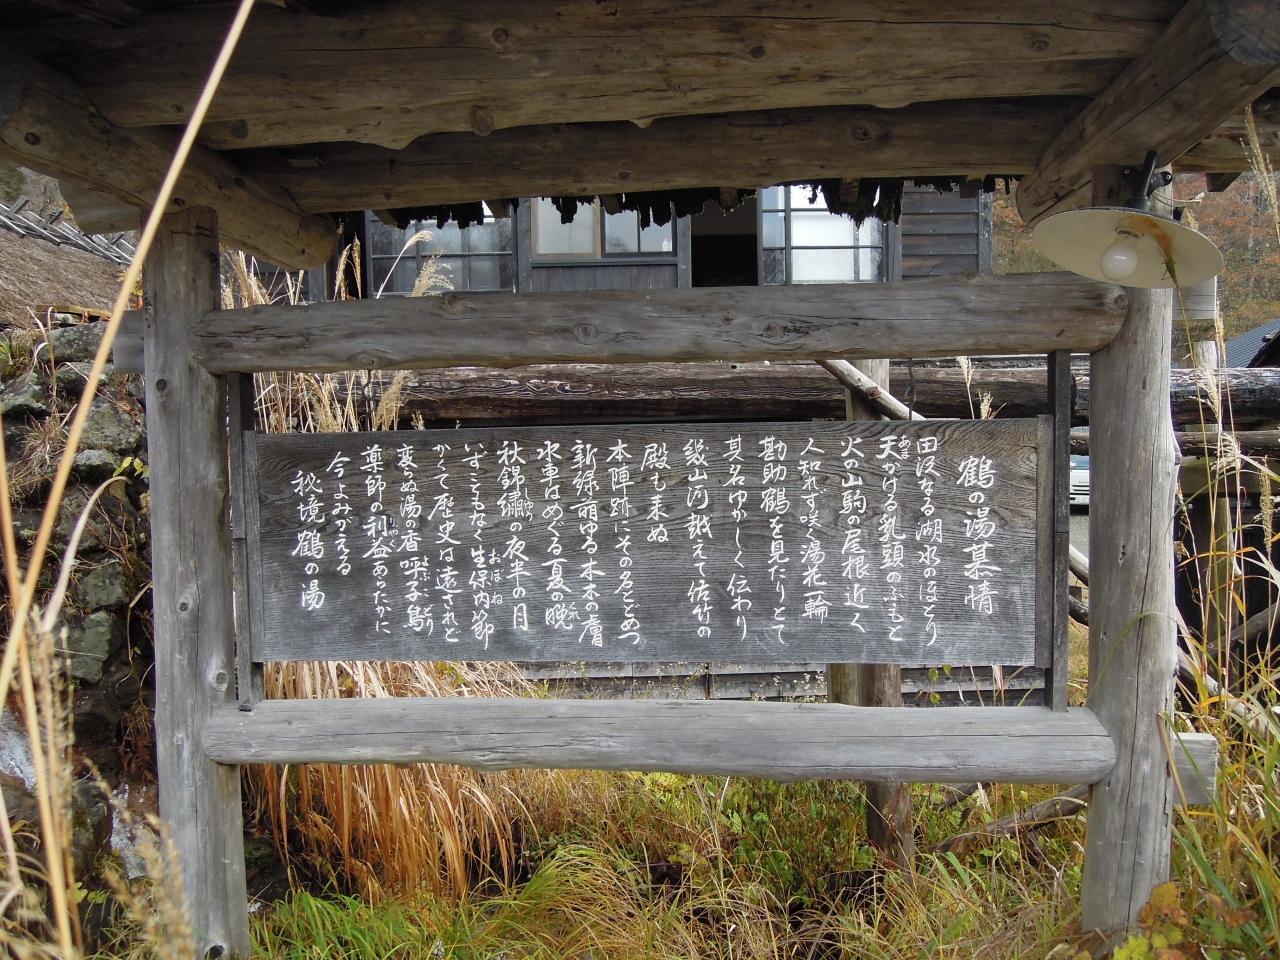 鶴の湯慕情
田沢なる湖水のほとり
天がける乳頭のふもと
火の山駒の尾根近く
人知れず咲く湯花一輪
勘助鶴を見たりとて
其名ゆかしく伝わり
幾山河越えて佐竹の
殿も来ぬ
本陣跡にその名とどめつ
新緑萌ゆる木木の膚
水車はめぐる夏の晩
秋錦繍の夜半の月
いずこともなく生保内節
かくて歴史は遠されど
変らぬ湯の香呼子鳥
薬師の利益あらたかに
今よみがえる
秘境鶴の湯